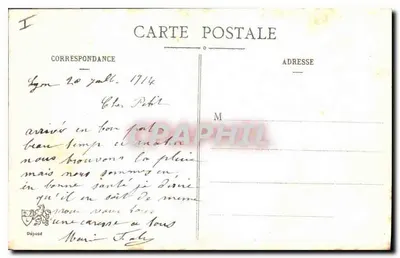 I
CARTE POSTALE
CORRESPONDANCE
ADRESSE
Lyon 20 juill. 1914
Cher
M
CPAPHIL
arrivés en bon port
beau temps ce matin
nous trouvons la pluie
mais nous sommes
en bonne santé je désire
qu'il en soit de meme
pour vous tous
une caresse a tous
Marie
Déposé